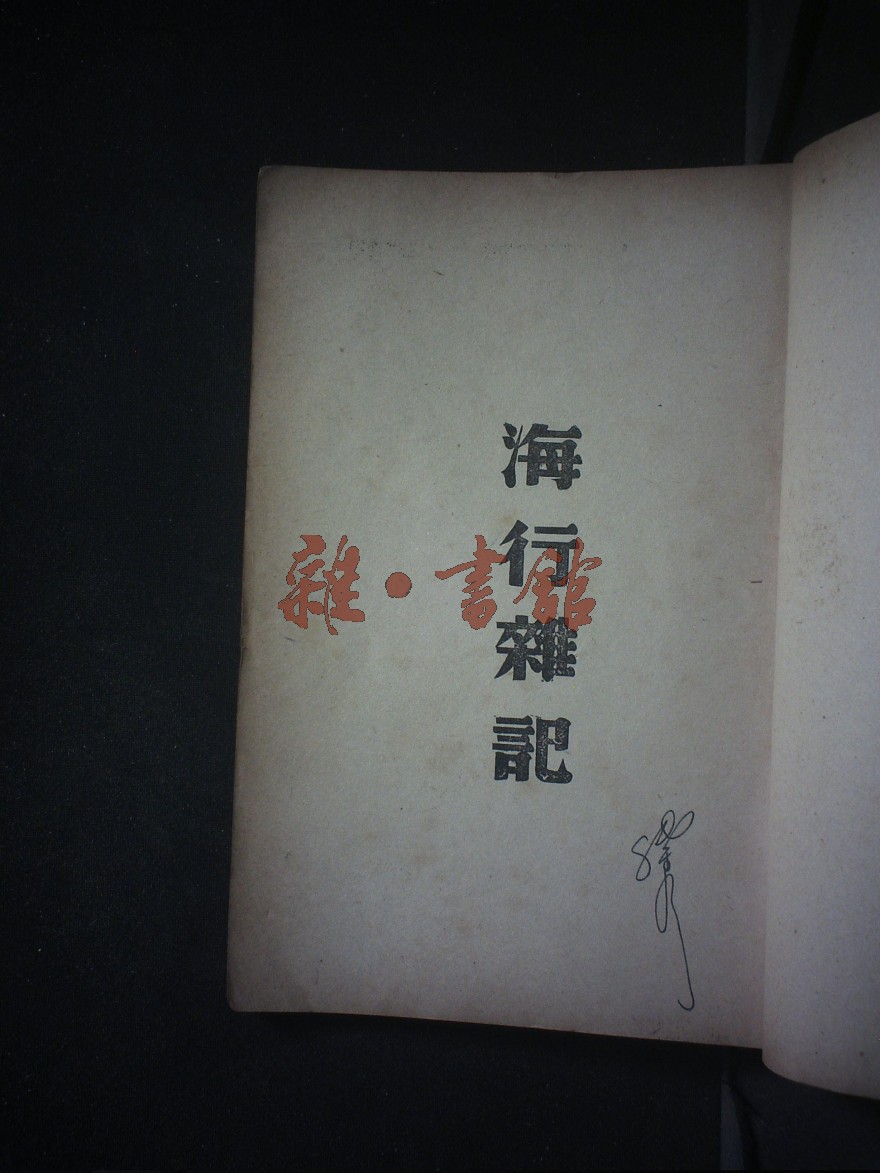 海行雜記
雜·書館